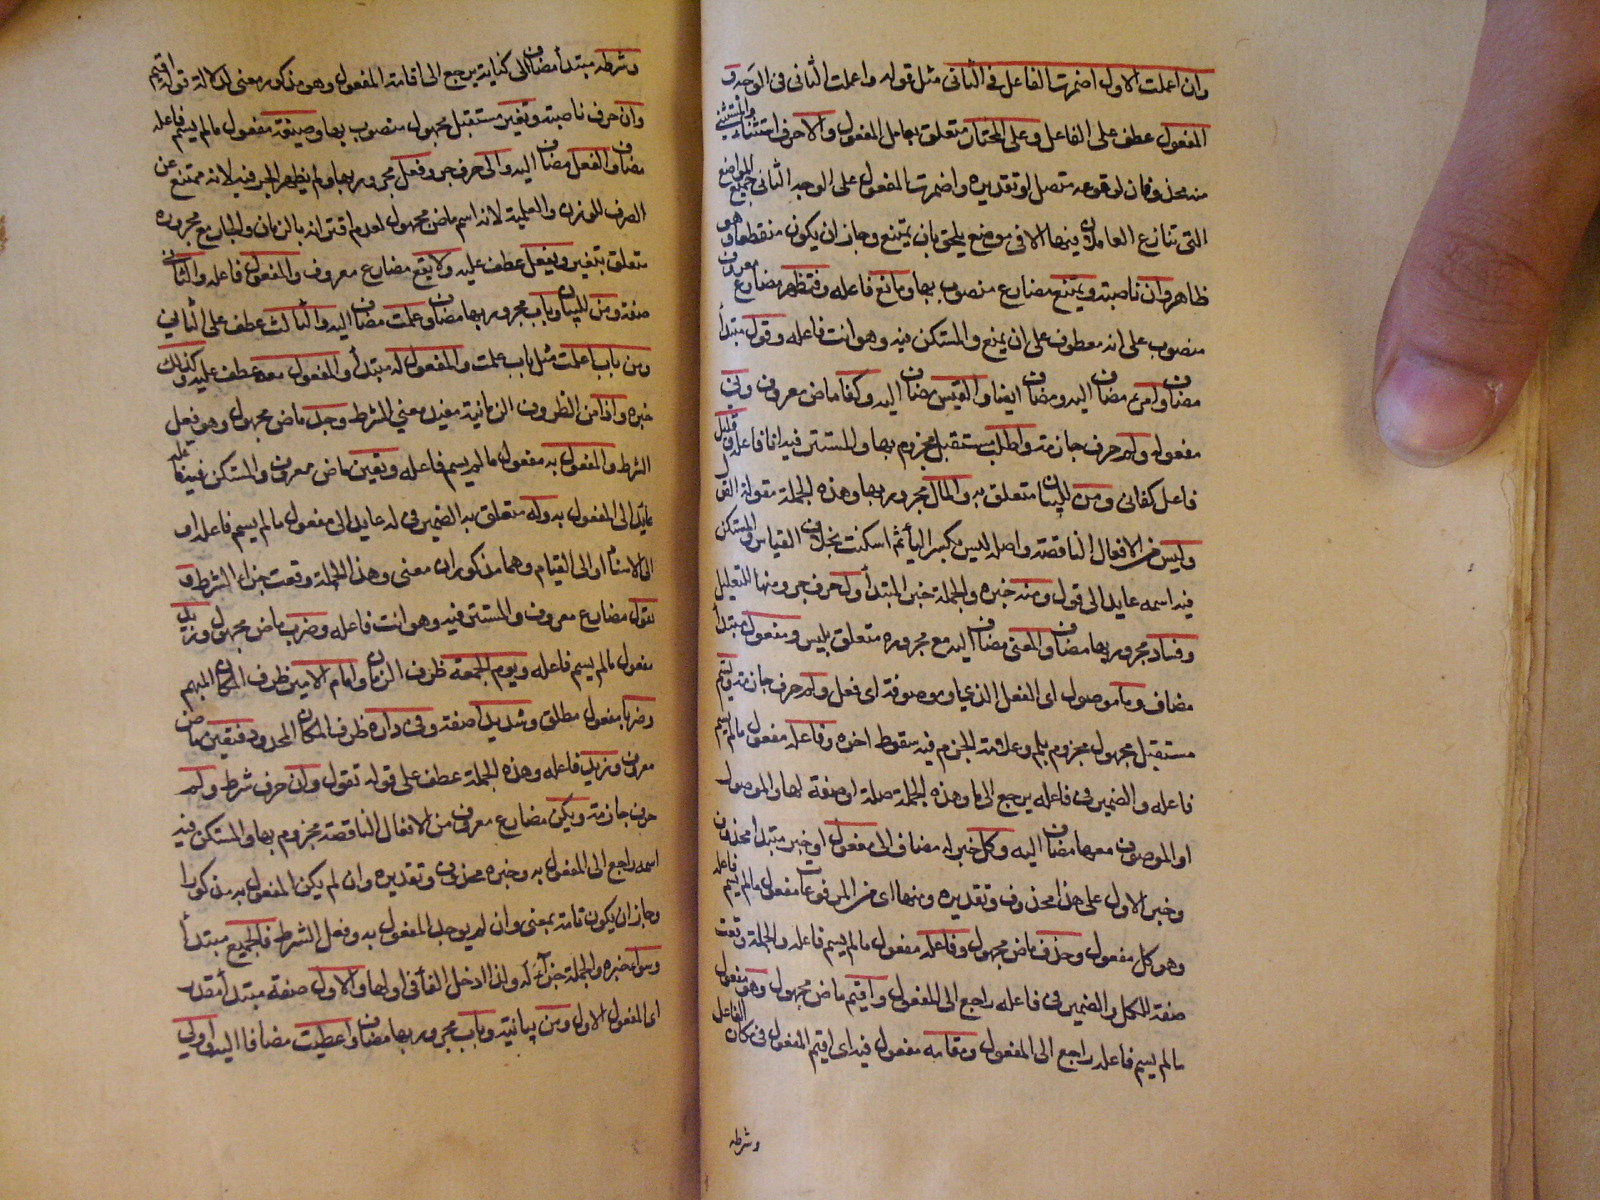 وان اعملت الاول اضمرت الفاعل في الثاني مثل قوله واعملت الثاني في الوجه و
المفعول عطف على الفاعل وعلى المختار متعلق بعامل المفعول والا حرف استثناء والمستثنى
منه محذوف كان لوقوعه متصل او تقديره واضمرت المفعول على الوجه الثاني جميع المواضع
التي تنازع العاملان فيها الا في موضع يلحق بان يمتنع وجاز ان يكون منقطعا وهو
ظاهر وان ناصبة ويمنع مضارع منصوب بها ومانع فاعله وفتظهر مضارع معروف
منصوب على انه معطوف على ان يمنع والمستكن فيه وهو انت فاعله وقول مبتدأ
مضاف وامرئ مضاف اليه ومضاف ايضا والقيس مضاف اليه وكفا ماض معروف وني
مفعوله ولم حرف جازمة واطلب مستقبل مجزوم بها والمستتر فيه انا فاعله وقليل
فاعل كفاني ومن للبيان متعلق به والمال مجرور بها وهذه الجملة مقولة القول
وليس من الافعال الناقصة واصله ليس بكسر الياء ثم اسكنت بخلاف القياس والمستكن
فيه اسمه عايد الى قول ومنه خبره والجملة خبر المبتدأ ول حرف جر ومنها للتعليل
وفساد مجرور بها مضاف والمعنى مضاف اليه مع مجروره متعلق بليس ومفعول مبتدأ
مضاف وما موصول اى الفعل الذى او موصوفة اى فعل ولم حرف جازمة ويسم
مستقبل مجهول مجزوم بلم وعلامة الجزم فيه سقوط اخره وفاعله مفعول مالم يسم
فاعله والضمير في فاعله يرجع الى ما وهذه الجملة صلة او صفة لها والموصول
او الموصوف معها مضاف اليه وكل خبر له مضاف الى مفعول او خبر مبتدأ محذوف
وخبر الاول على هذا محذوف وتقديره ومنها اى من المرفوعات مفعول مالم يسم فاعله
وهو كل مفعول وحذف ماض مجهول وفاعله مفعول مالم يسم فاعله والجملة وقعت
صفة للكل والضمير في فاعله راجع الى المفعول واقيم ماض مجهول وهو مفعول
مالم يسم فاعله راجع الى المفعول ومقامه مفعول فيه اى اقيم المفعول في مكان الفاعل
وشرطه
وشرطه مبتدأ مضاف الى كناية يرجع الى اقامة المفعول وهو مذكور معنى لدلالة قوله اقيم
وان حرف ناصبة وتغير مستقبل مجهول منصوب بها وصيغة مفعول مالم يسم فاعله
مضاف والفعل مضاف اليه والى حرف جر وفعل مجرور بها ولم يظهر الجر فيه لانه ممتنع عن
الصرف للوزن والعلمية لانه اسم ماض مجهول لعدم اقترانه بالزمان والجار مع مجروره
متعلق بتغير ويفعل عطف عليه ولا يقع مضارع معروف والمفعول فاعله والثاني
صفته ومن للبيان وباب مجرور بها مضاف وعلمت مضاف اليه والثالث عطف على الثاني
ومن باب اعلمت مثل باب علمت والمفعول له مبتدأ والمفعول معه عطف عليه وكذلك
خبره واذا من الظروف الزمانية مفيد معنى الشرط وجد ماض مجهول وهو فعل
الشرط والمفعول به مفعول مالم يسم فاعله وتعين ماض معروف والمستكن فيه فاعله
عايد الى المفعول به وله متعلق به الضمير في له عايد الى مفعول مالم يسم فاعله او
الى الاسناد او الى القيام وهما مذكوران معنى وهذه الجملة وقعت جزاء الشرط و
تقول مضارع معروف والمستتر فيه وهو انت فاعله وضرب ماض مجهول وزيد
مفعول مالم يسم فاعله ويوم الجمعة ظرف الزمان وامام الامير ظرف المكان المبهم
وضربا مفعول مطلق وشديدا صفته وفي داره ظرف المكان المحدود فتعين ماض
معروف وزيد فاعله وهذه الجملة عطف على قوله تقول وان حرف شرط ولم
حرف جازمة ويكن مضارع معروف من الافعال الناقصة مجزوم بها والمستكن فيه
اسمه راجع الى المفعول به وخبره محذوف وتقديره وان لم يكن المفعول به مذكورا
وجاز ان يكون تامة بمعنى وان لم يوجد المفعول به وفعل الشرط فالجميع مبتدأ
وسواء خبره والجملة جزآء له ولذا ادخل الفأ في اولها والاول صفة مبتدأ مقدر
اى المفعول الاول ومن بيانية وباب مجرور بها مضاف واعطيت مضافا اليه واولى